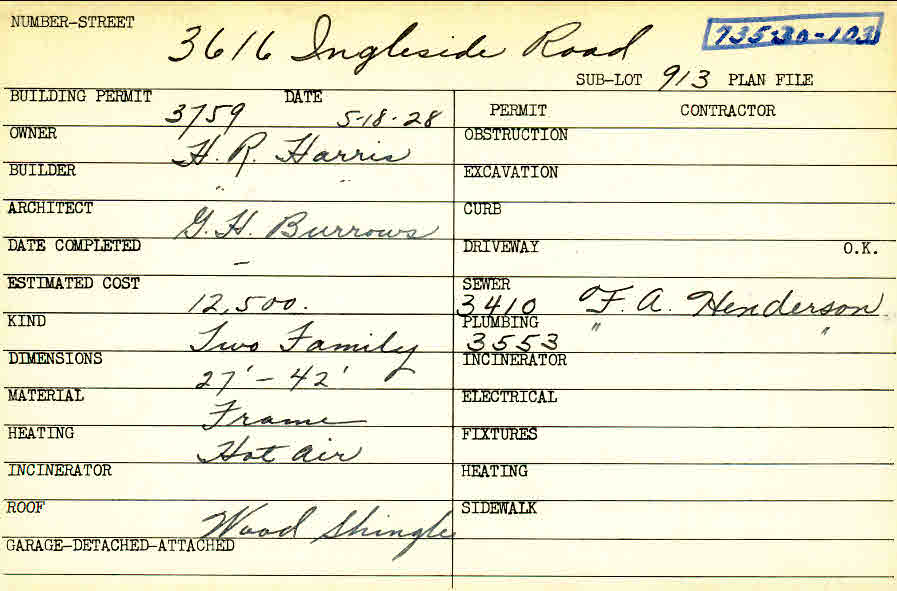 NUMBER-STREET
3616 Ingleside Road
735-30-103
SUB-LOT 913 PLAN FILE
BUILDING PERMIT DATE
3759 5-18-28
PERMIT CONTRACTOR
OWNER
H. R. Harris
OBSTRUCTION
BUILDER
" "
EXCAVATION
ARCHITECT
G. H. Burrows
CURB
DATE COMPLETED
-
DRIVEWAY O.K.
ESTIMATED COST
12,500.
SEWER
3410 F. A. Henderson
KIND
Two Family
PLUMBING " "
3553
DIMENSIONS
27' - 42'
INCINERATOR
MATERIAL
Frame
ELECTRICAL
HEATING
Hot air
FIXTURES
INCINERATOR
HEATING
ROOF
Wood Shingle
SIDEWALK
GARAGE-DETACHED-ATTACHED